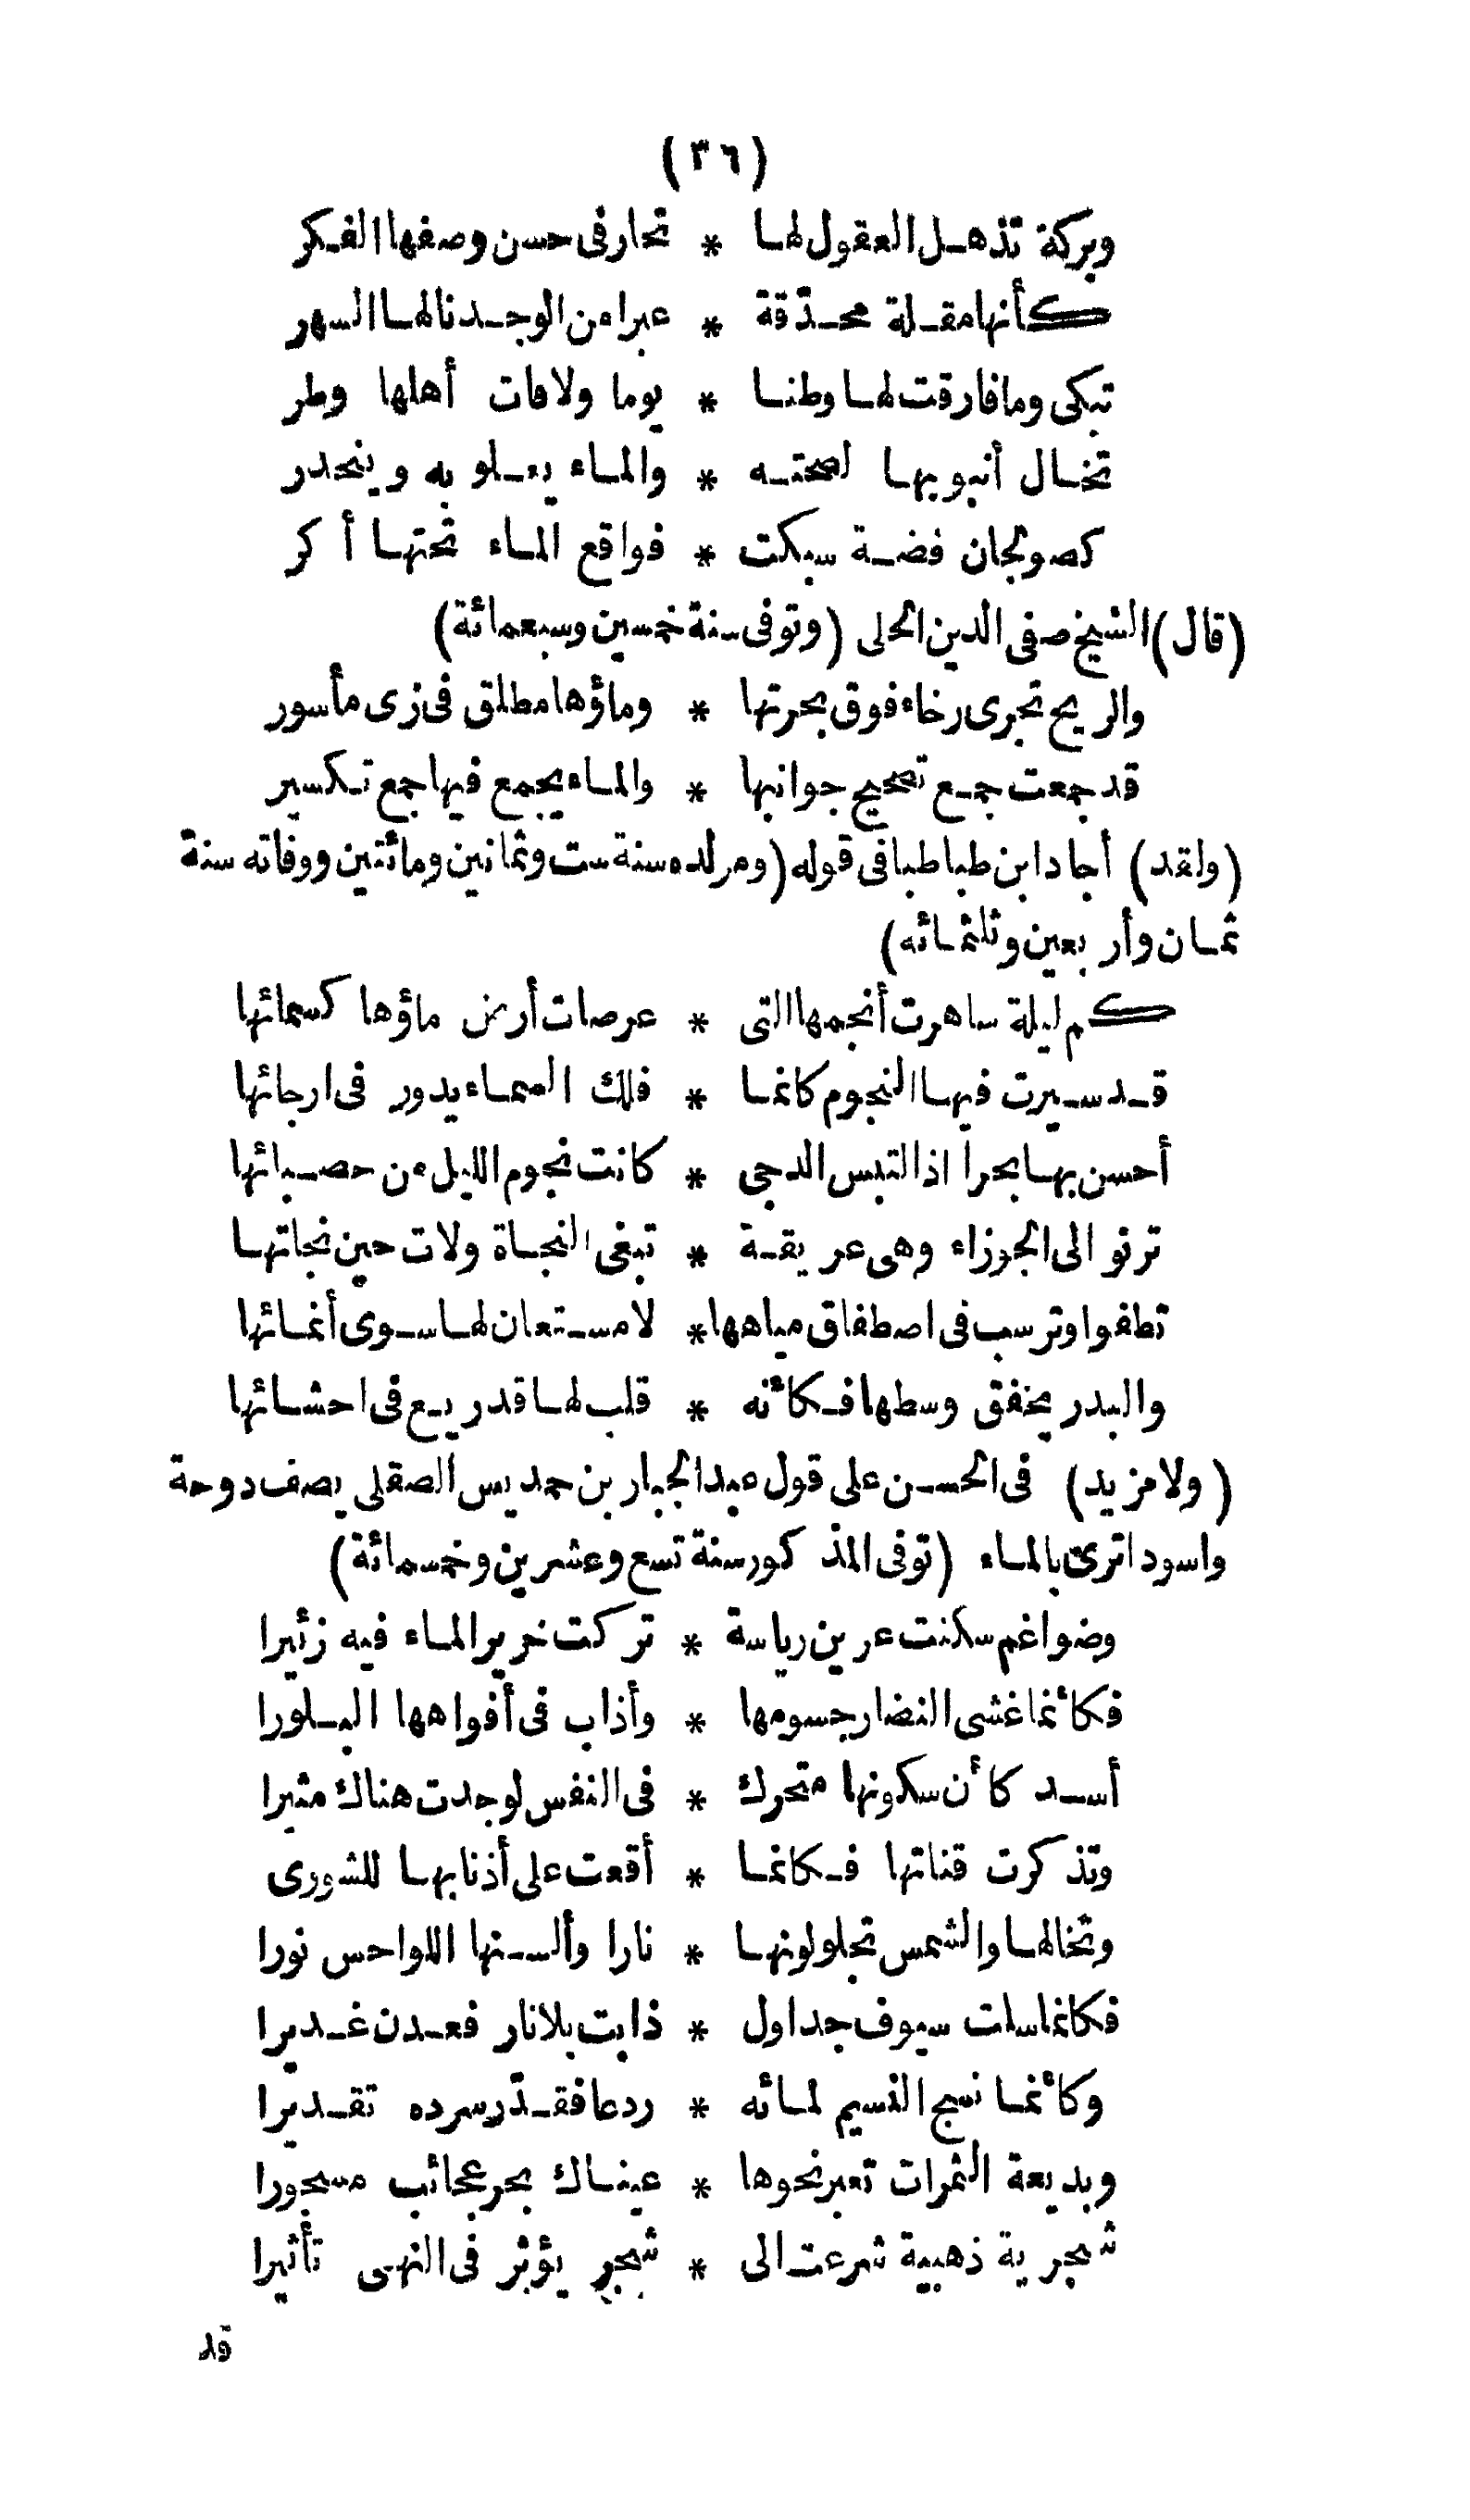 (٣٦)
وبركة تذهل العقول لها * تحار فى حسن وصفها الفكر
كأنها مقلة محدّقة * عبرا من الوجد نالها السهر
تبكى وما فارقت لها وطنا * يوما ولا فات أهلها وطر
تخال أنبوبها لصحته * والماء يعلو به وينحدر
كصولجان فضة سبكت * فواقع الماء تحتها أكر
(قال) الشيخ صفى الدين الحلى (وتوفى سنة خمسين وسبعمائة)
والريح تجرى رخاء فوق بحرتها * وماؤها مطلق فى زى مأسور
قد جمعت جمع تصحيح جوانبها * والماء يجمع فيها جمع تكسير
(ولقد) أجاد ابن طباطبا فى قوله (ومولده سنة ست وثمانين ومائتين ووفاته سنة
ثمان وأربعين وثلثمائه)
كم ليلة ساهرت أنجمها التى * عرصات أرض ماؤها كسمائها
قد سيرت فيها النجوم كانما * فلك السماء يدور فى ارجائها
أحسن بها بحرا اذا التبس الدجى * كانت نجوم الليل من حصبائها
ترنو الى الجوزاء وهى عريقة * تبغى النجاة ولات حين نجاتها
تطفوا وترسب فى اصطفاق مياهها * لا مستعان لها سوى أنمائها
والبدر يخفق وسطها فكأنه * قلب لها قد ريع فى احشائها
(ولا مزيد) فى الحسن على قول عبد الجبار بن حمديس الصقلى يصف دوحة
واسودا ترى بالماء (توفى المذكور سنة تسع وعشرين وخمسمائة)
وضواغم سكنت عرين رياسة * تركت خرير الماء فيه زئيرا
فكأنما غشى النضار جسومها * وأذاب فى أفواهها البلورا
أسد كأن سكونها متحرك * فى النفس لو جدت هناك مثيرا
وتذكرت قناتها فكانما * أقعت على أذنابها للشورى
وتخالها والشمس تجلو لونها * نارا وألسنها اللواحس نورا
فكانما سلت سيوف جداول * ذابت بلا نار فعدن غديرا
وكأنما نسج النسيم لمائه * ردعا فقدّر سرده تقديرا
وبديعة الثمرات تعبر نحوها * عيناك بحر عجائب مسجورا
شجرية ذهبية شرعت الى * شجر يؤثر فى النهى تأثيرا
قد